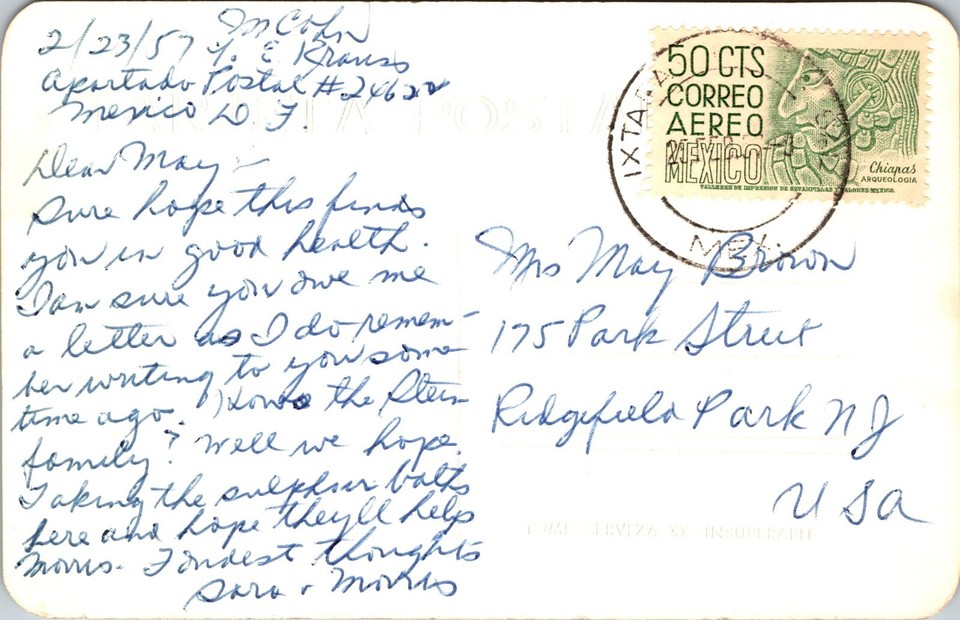 2/23/57 M Cohn
% E Krauss
Apartado Postal #24622
Mexico D. F.
Dear May -
Sure hope this finds
you in good health.
I am sure you owe me
a letter as I do remem-
ber writing to you some-
time ago. Hows the Stein
family? Well we hope.
Taking the sulphur baths
here and hope they'll help
Morris. Fondest thoughts
Sara & Morris
50 CTS
CORREO
AEREO
MEXICO
Chiapas
ARQUEOLOGIA
TALLERES DE IMPRESION DE ESTAMPILLAS Y VALORES-MEXICO.
IXTAPA
MEX.
Mrs May Brown
175 Park Street
Ridgefield Park NJ
USA
TARJETA POSTAL
TOME CERVEZA XX INSUPERABLE